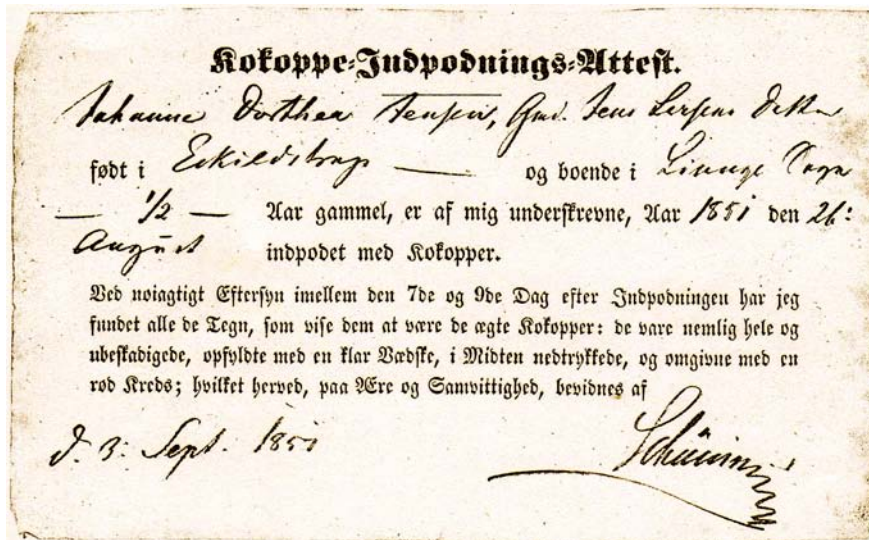 Kokoppe-Indpodnings-Attest.
Johanne Dorthea Jensen, Gmd. Jens Larsens Datter
født i Eskildstrup — og boende i Liunge Sogn
— 1/2 — Aar gammel, er af mig underskrevne, Aar 1851 den 26:
August indpodet med Kokopper.
Ved noiagtigt Eftersyn imellem den 7de og 9de Dag efter Indpodningen har jeg
fundet alle de Tegn, som vise dem at være de ægte Kokopper: de vare nemlig hele og
ubeskadigede, opfyldte med en klar Vædske, i Midten nedtrykkede, og omgivne med en
rød Kreds; hvilket herved, paa Ære og Samvittighed, bevidnes af
d. 3. Sept. 1851